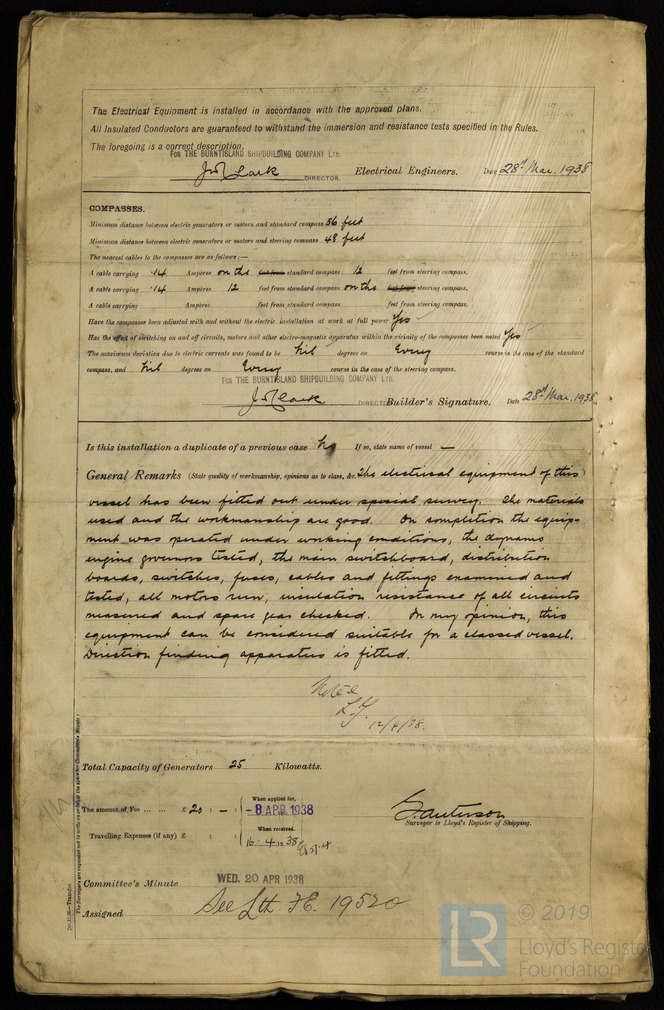 The Electrical Equipment is installed in accordance with the approved plans.
All Insulated Conductors are guaranteed to withstand the immersion and resistance tests specified in the Rules.
The foregoing is a correct description.
FOR THE BURNTISLAND SHIPBUILDING COMPANY LTD.
Clark DIRECTOR. Electrical Engineers. Date 28th Mar. 1938
COMPASSES.
Minimum distance between electric generators or motors and standard compass 56 feet
Minimum distance between electric generators or motors and steering compass 48 feet
The nearest cables to the compasses are as follows:—
A cable carrying .14 Ampères on the feet from standard compass 12 feet from steering compass.
A cable carrying .14 Ampères 12 feet from standard compass on the feet from steering compass.
A cable carrying Ampères feet from standard compass feet from steering compass.
Have the compasses been adjusted with and without the electric installation at work at full power Yes
Has the effect of switching on and off circuits, motors and other electro-magnetic apparatus within the vicinity of the compasses been noted Yes
The maximum deviation due to electric currents was found to be Nil degrees on Every course in the case of the standard
compass, and Nil degrees on Every course in the case of the steering compass.
FOR THE BURNTISLAND SHIPBUILDING COMPANY LTD.
Clark DIRECTOR Builder's Signature. Date 28th Mar. 1938
Is this installation a duplicate of a previous case No If so, state name of vessel —
General Remarks (State quality of workmanship, opinions as to class, &c. The electrical equipment of this
vessel has been fitted out under special survey. The materials
used and the workmanship are good. On completion the equip-
ment was operated under working conditions, the dynamo
engine governors tested, the main switchboard, distribution
boards, switches, fuses, cables and fittings examined and
tested, all motors run, insulation resistance of all circuits
measured and spare gear checked. In my opinion, this
equipment can be considered suitable for a classed vessel.
Direction finding apparatus is fitted.
Noted
12/4/38.
Total Capacity of Generators 25 Kilowatts.
The amount of Fee ... ... £ 20 : — : When applied for, -8 APR 1938
Travelling Expenses (if any) £ : : When received, 16.4.1938
Surveyor to Lloyd's Register of Shipping.
Committee's Minute WED. 20 APR 1938
Assigned See Lth. F.E. 19520
2m.11.36—Transfer.
The Surveyors are requested not to write on or below the space for Committee's Minute.
LR © 2019
Lloyd's Register
Foundation